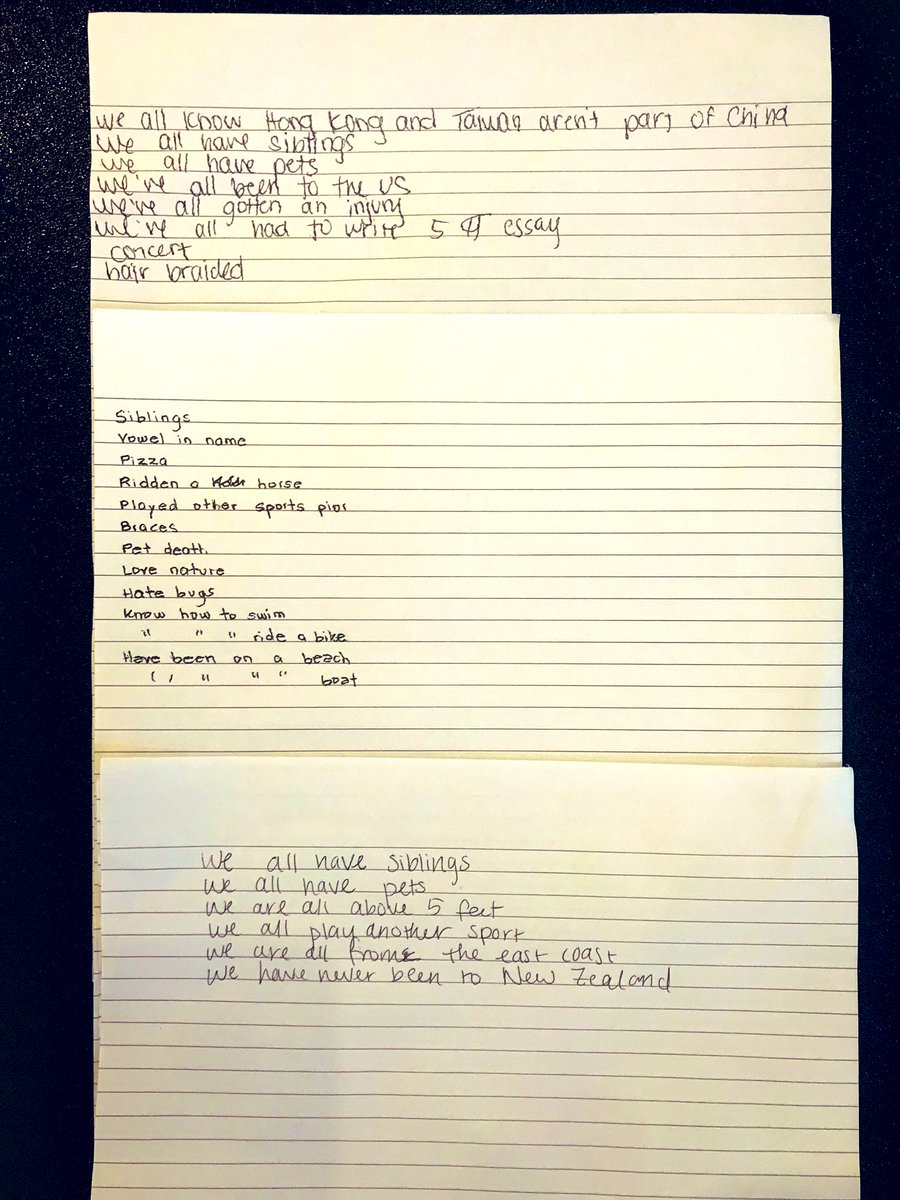 we all know Hong Kong and Taiwan aren't part of China
We all have siblings
we all have pets
we've all been to the US
we've all gotten an injury
we've all had to write 5 ¶ essay
concert
hair braided
Siblings
Vowel in name
Pizza
Ridden a horse
Played other sports prior
Braces
Pet death
Love nature
Hate bugs
Know how to swim
" " " ride a bike
Have been on a beach
" " " " boat
We all have siblings
we all have pets
we are all above 5 feet
we all play another sport
we are all from the east coast
we have never been to New Zealand